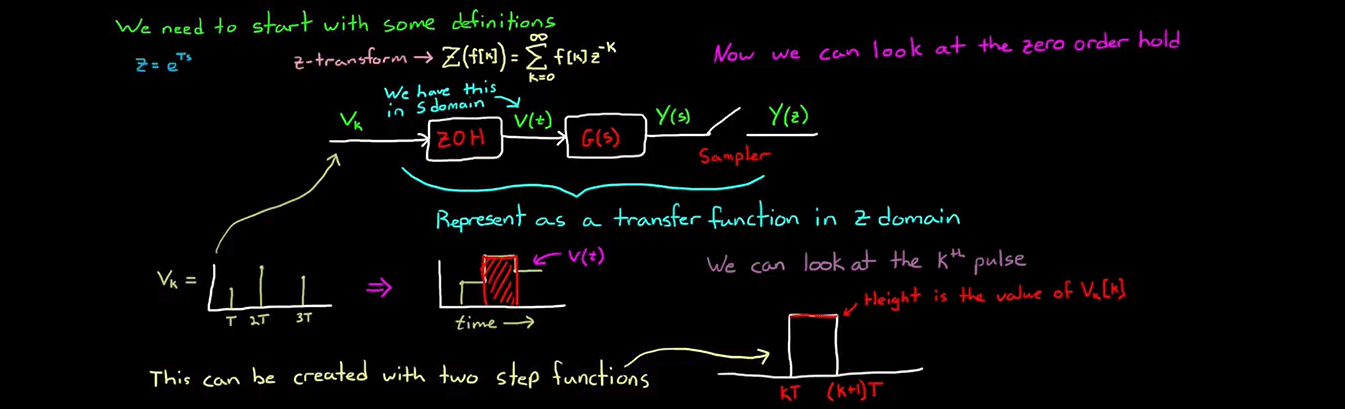 We need to start with some definitions
z = e^Ts
z-transform → Z(f[k]) = ∑ f[k] z^-k
∞
k=0
Now we can look at the zero order hold
We have this
in s domain
Vk
ZOH
V(t)
G(s)
Y(s)
Y(z)
Sampler
Represent as a transfer function in z domain
Vk =
T 2T 3T
⇒
V(t)
time →
We can look at the kth pulse
Height is the value of Vk[k]
kT (k+1)T
This can be created with two step functions